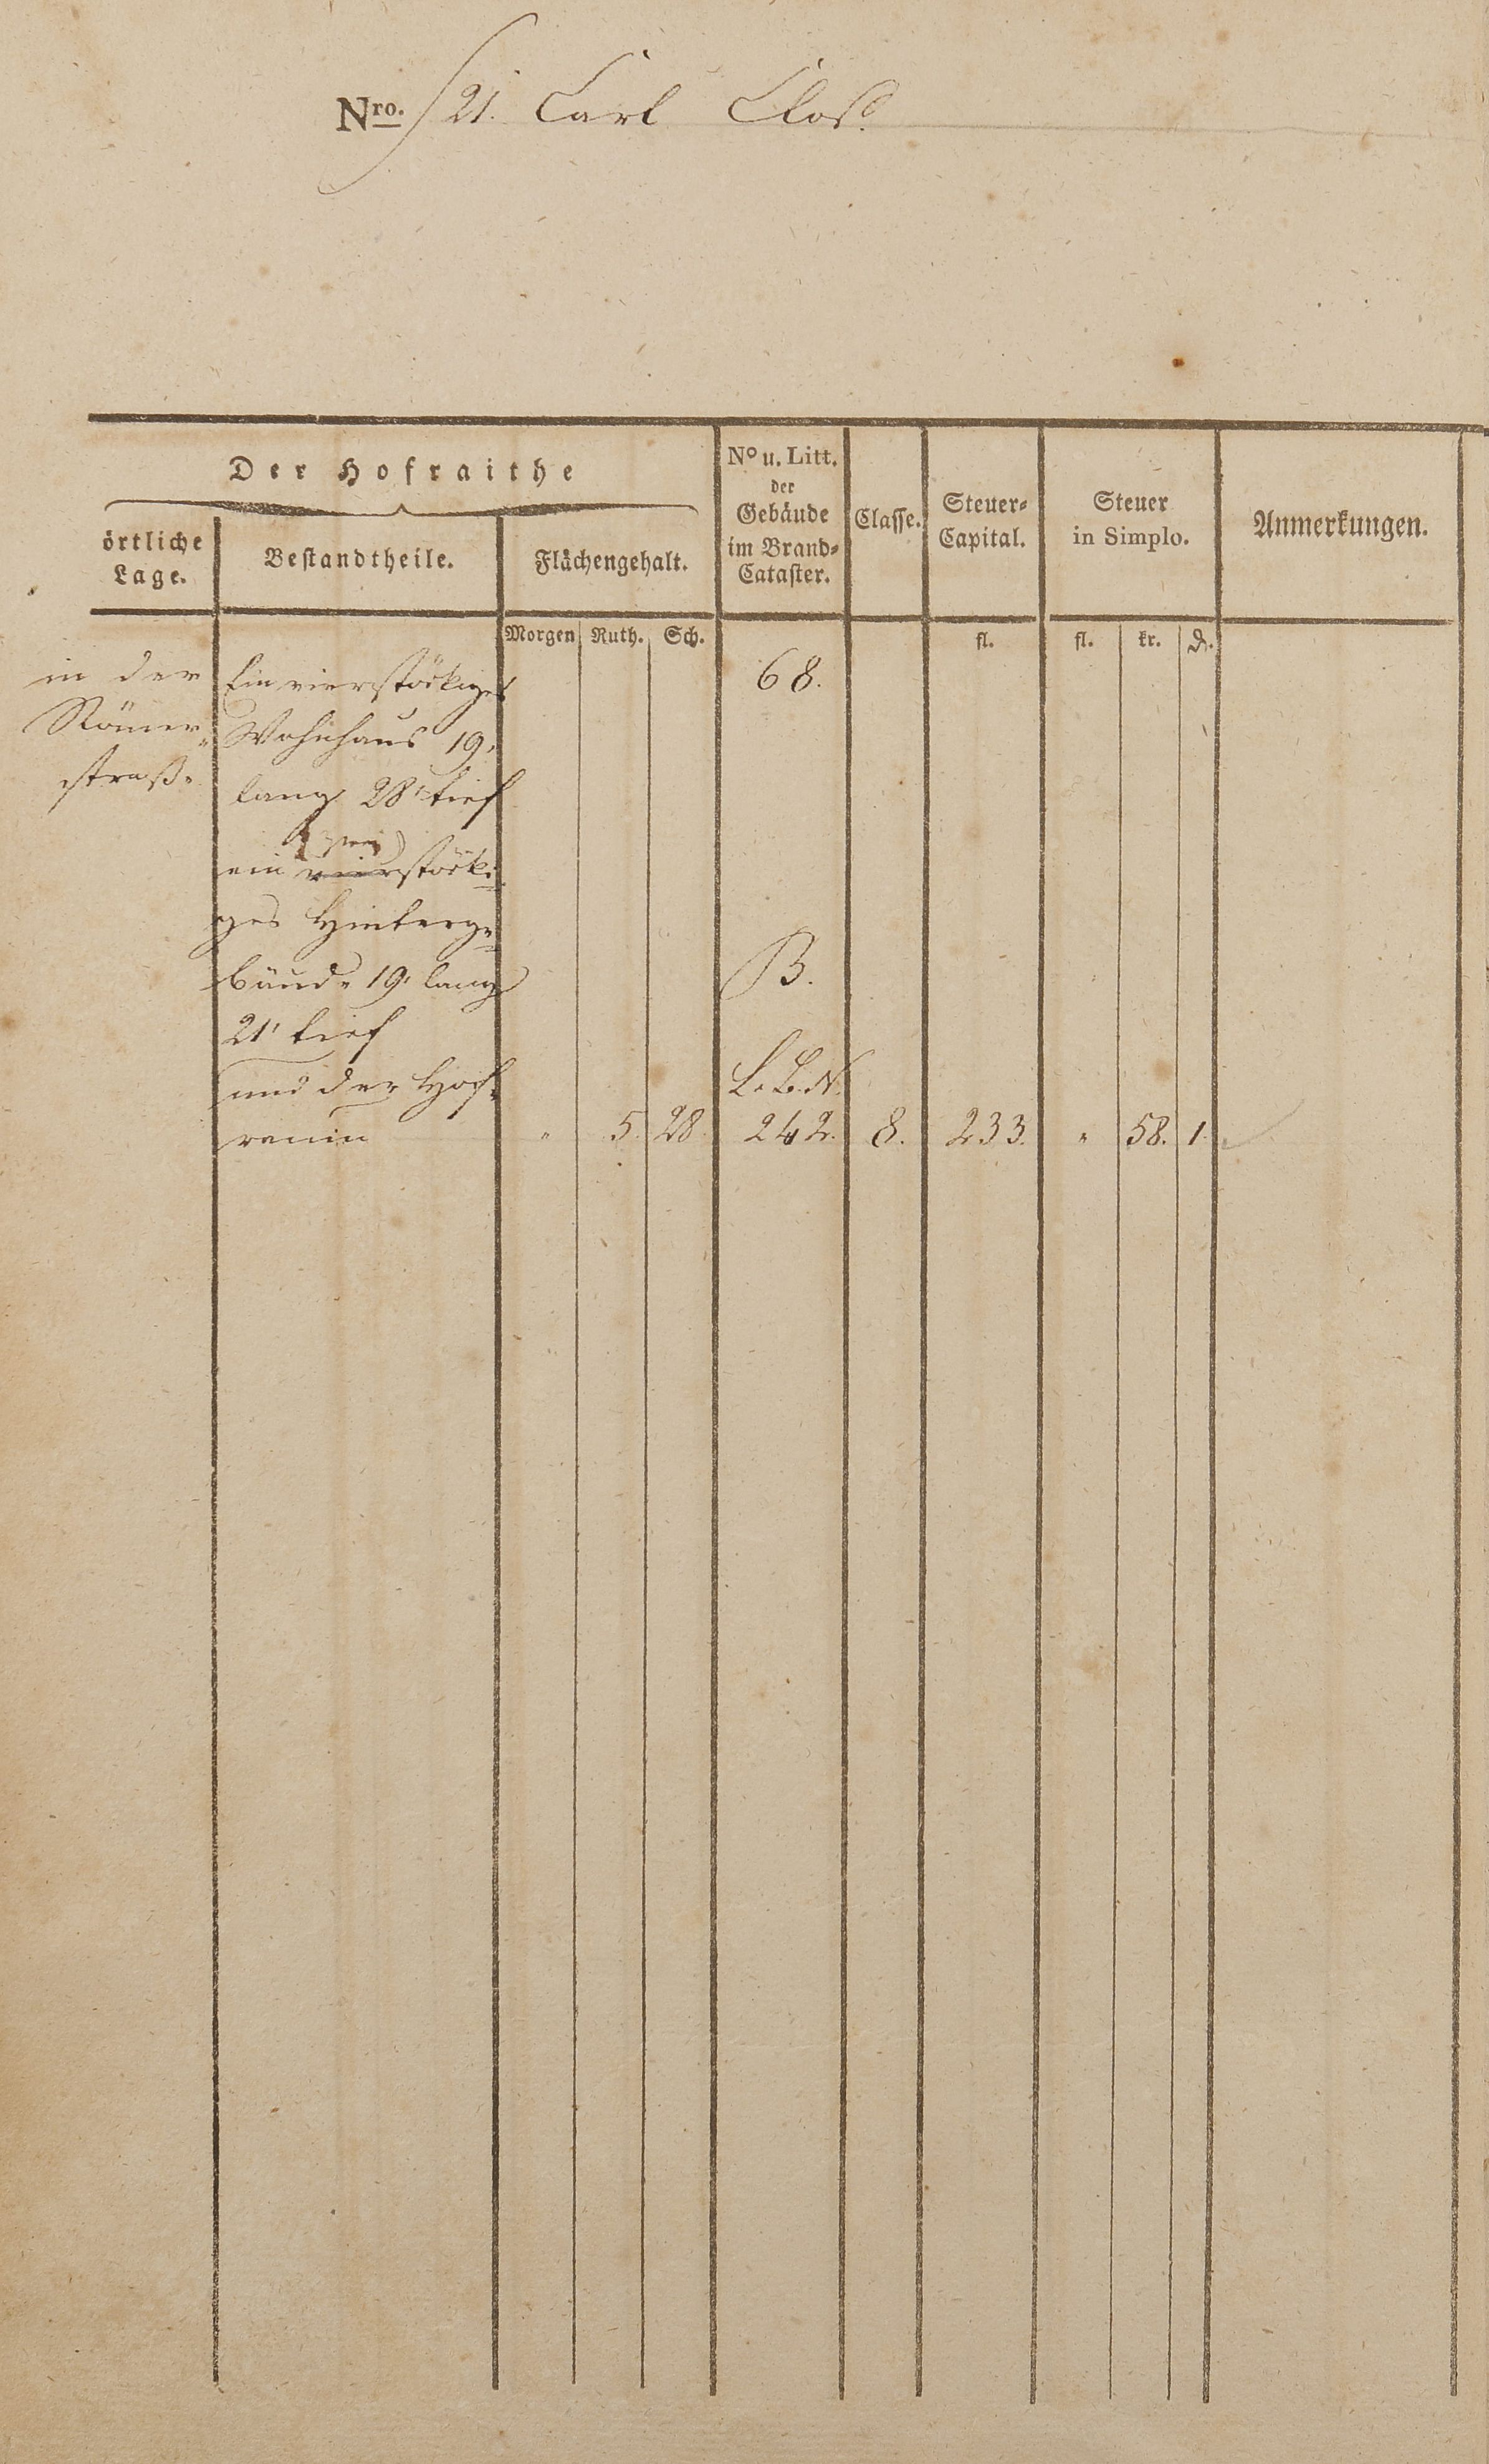 Nro. 121. Carl Closs.
Der Hofraithe
örtliche Lage.
Bestandtheile.
Flächengehalt.
No u. Litt. der Gebäude im Brand-Cataster.
Classe.
Steuer-Capital.
Steuer in Simplo.
Anmerkungen.
Morgen Ruth. Sch.
fl. fl. kr. D.
in der Ein vierstöckiges 68.
Römer- Wohnhaus 19'
straße lang 28' tief
zwei
ein vierstöcki-
ges Hinterge-
bäude 19' lang B.
21' tief
und der Hof- L.B.N.
raum " 5. 28. 242. 8. 233. " 58. 1.